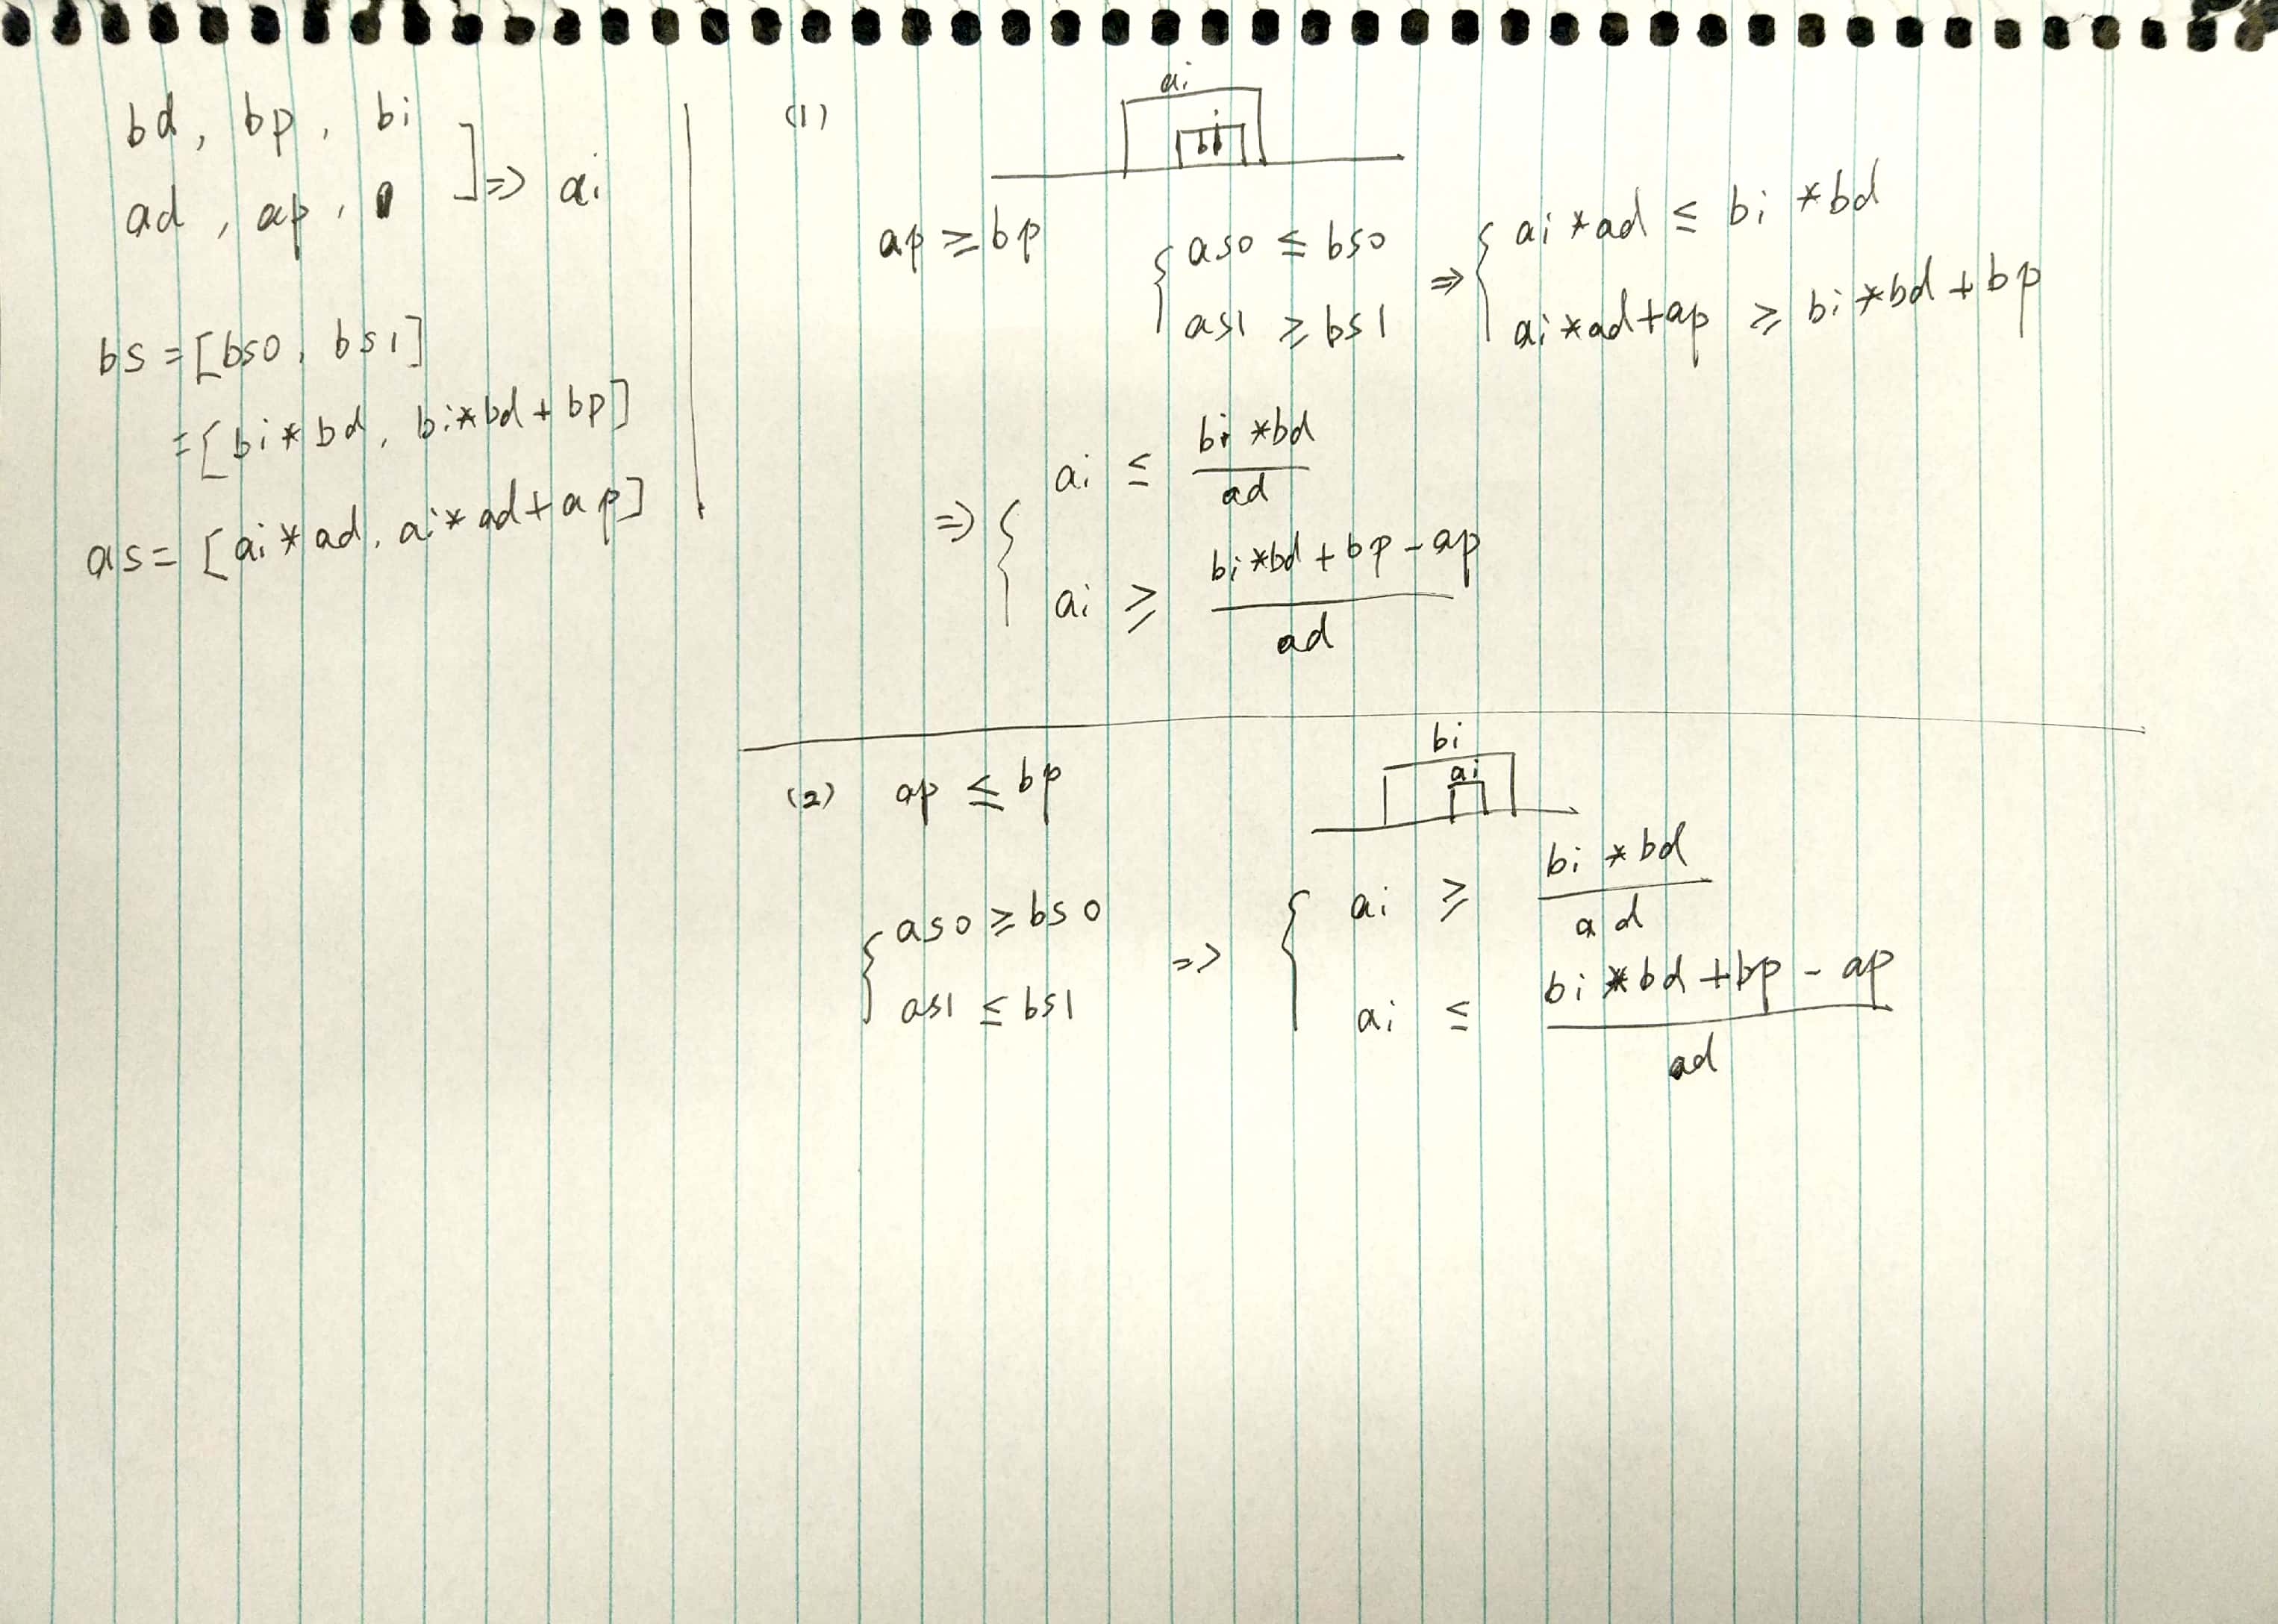 bd, bp, bi
ad, ap, ] => ai
bs = [bs0, bs1]
= [bi*bd, bi*bd+bp]
as = [ai*ad, ai*ad+ap]
(1)
ai
bi
ap ≥ bp
{ as0 ≤ bs0
as1 ≥ bs1
=> { ai*ad ≤ bi*bd
ai*ad+ap ≥ bi*bd+bp
=> { ai ≤ bi*bd / ad
ai ≥ bi*bd+bp-ap / ad
(2) ap ≤ bp
bi
ai
{ as0 ≥ bs0
as1 ≤ bs1
=> { ai ≥ bi*bd / ad
ai ≤ bi*bd+bp-ap / ad